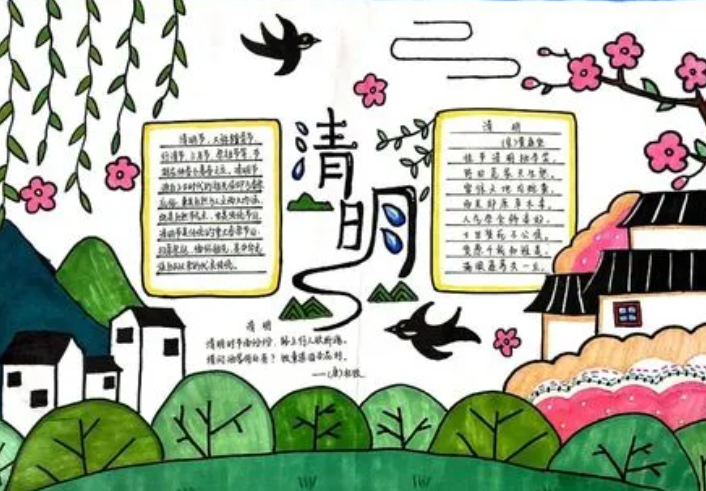 清明
清明节，又称踏青节、
行清节、三月节、祭祖节等，节
期在仲春与暮春之交。清明节
源自上古时代的祖先信仰与春祭
礼俗，兼具自然与人文两大内涵，
既是自然节气点，也是传统节日，
清明节是传统的重大春祭节日，
扫墓祭祀、缅怀祖先，是中华民
族自古以来的优良传统。
清 明
(宋)黄庭坚
佳节清明桃李笑，
野田荒冢只生愁。
雷惊天地龙蛇蛰，
雨足郊原草木柔。
人乞祭余骄妾妇，
士甘焚死不公侯。
贤愚千载知谁是，
满眼蓬蒿共一丘。
清 明
清明时节雨纷纷，路上行人欲断魂。
借问酒家何处有？牧童遥指杏花村。
——(唐)杜牧